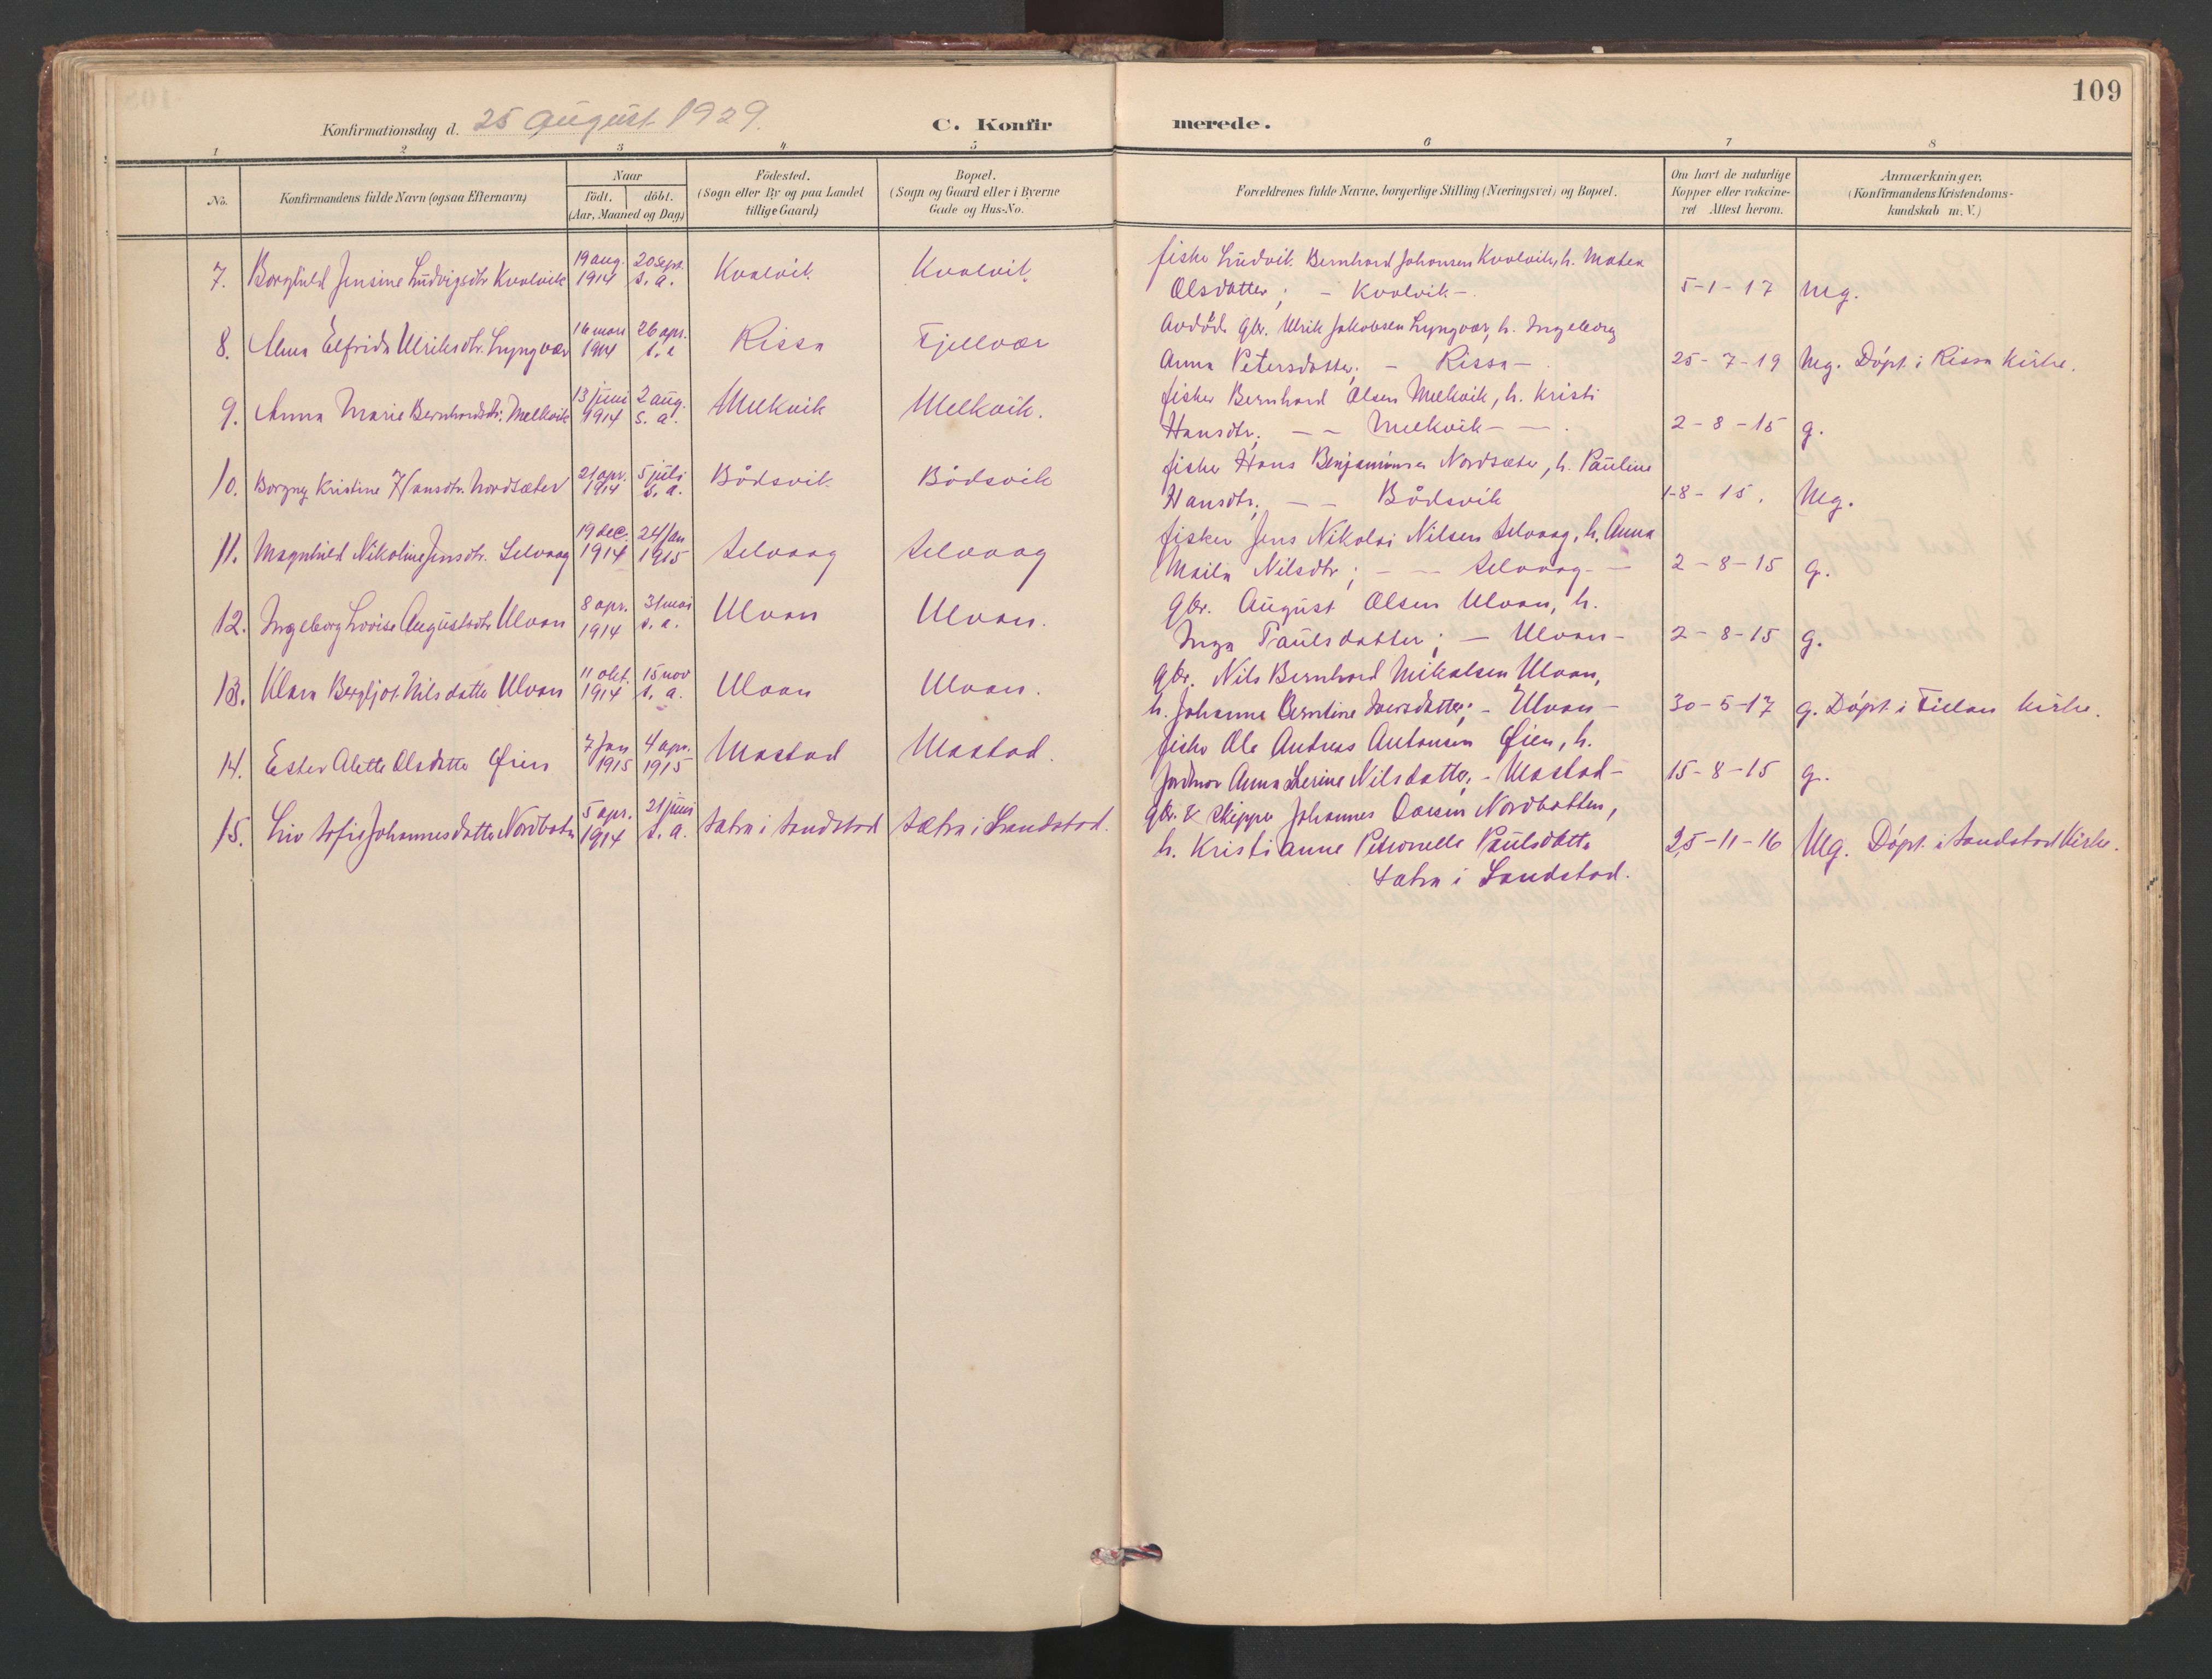 109
Konfirmationsdag d. 25 august 1929.
C. Konfirmerede.
1 2 3 4 5 6 7 8
No.
Konfirmandens fulde Navn (ogsaa Efternavn)
Naar
födt. döbt.
(Aar, Maaned og Dag)
Födested.
(Sogn eller By og paa Landet
tillige Gaard)
Bopæl.
(Sogn og Gaard eller i Byerne
Gade og Hus-No.
Forældrenes fulde Navne, borgerlige Stilling (Næringsvei) og Bopæl.
Om havt de naturlige
Kopper eller vakcine-
ret Attest herom.
Anmærkninger,
(Konfirmandens Kristendoms-
kundskab m. V.)
7. Borghild Jensine Ludvigsdtr. Kvalvik 19 aug. 1914 20 sept. s. a. Kvalvik Kvalvik fisker Ludvik Bernhard Johansen Kvalvik, h. Matea
Olsdatter; - Kvalvik -. 5-1-17 Mg.
8. Alma Elfrida Ulriksdtr. Lyngvær 16 mars 1914 26 apr. s. a Rissa Fjellvær Avdøde gbr. Ulrik Jakobsen Lyngvær, h. Ingeborg
Anna Petersdatter; - Rissa - 25-7-19 Mg. Döpt i Rissa kirke.
9. Anna Marie Bernhardsdtr. Melkvik 13 juni 1914 2 aug. s. a. Melkvik Melkvik. fisker Bernhard Olsen Melkvik, h. Kristi
Hansdtr; - - Melkvik - - . 2-8-15 g.
10. Borgny Kristine Hansdtr. Nordsæter 21 apr. 1914 5 juli s. a. Bådsvik Bådsvik fisker Hans Benjaminsen Nordsæter, h. Pauline
Hansdtr; - - Bådsvik 1-8-15. Mg.
11. Magnhild Nikoline Jensdtr. Selvaag 19 dec. 1914 24 jan 1915 Selvaag Selvaag fisker Jens Nikolai Nilsen Selvaag, h. Anna
Nilsdtr; - - Selvaag - - 2-8-15 g.
12. Ingeborg Lovise Augustsdtr Ulvan 8 apr. 1914 31 mai s. a. Ulvan Ulvan. gbr. August Olsen Ulvan, h.
Inga Paulsdatter; - Ulvan - 2-8-15 g.
13. Klara Bergljot Nilsdatter Ulvan 11 okt. 1914 15 nov s. a. Ulvan Ulvan. gbr. Nils Bernhard Mikalsen Ulvan,
h. Johanne Berntine Iversdatter; - Ulvan - 30-5-17 g. Döpt i Fillan kirke.
14. Ester Alette Olsdatter Øien 7 jan 1915 4 apr. 1915 Mastad Mastad. fisker Ole Andreas Antonsen Øien, h.
Jordmor Anna Serine Nilsdatter; - Mastad - 15-8-15 g.
15. Liv Sofie Johannesdatter Nordbotn 5 apr. 1914 21 juni s. a. Sætra i Sandstad Sætra i Sandstad. gbr. & skipper Johannes Nordbotten,
h. Kristianne Petronelle Paulsdatter 25-11-16 Mg. Döpt i Sandstad Kirke.
Sætra i Sandstad.